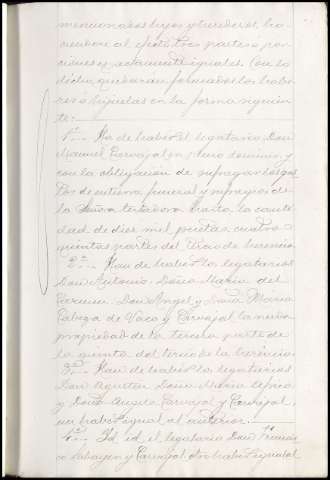 mencionados hijos y herederos, ha-
ciendose al efecto tres partes ó por-
ciones y exactamente iguales. Con lo
dicho quedarán formados los habe-
res é hijuelas en la forma siguien
te:
1º.- Ha de haber el legatario Don
Manuel Carvajal en pleno dominio y
con la obligación de sufragar los gas
tos de entierro, funeral y sufragios de
la Señora testadora hasta la canti-
dad de diez mil pesetas, cuatro
quintas partes del tercio de herencia.
2º.- Han de haber los legatarios
Don Antonio, Doña María del
Carmen, Don Angel y Doña María
Cabeza de Vaca y Carvajal la nuda
propiedad de la tercera parte de
la quinta del tercio de la herencia.
3º.- Han de haber los legatarios
Don Agustín, Doña María
y Doña Angela Carvajal y Carvajal,
un haber igual al anterior.
4º.- Id. id. el legatario Don Francis
co y Carvajal otro haber igual al